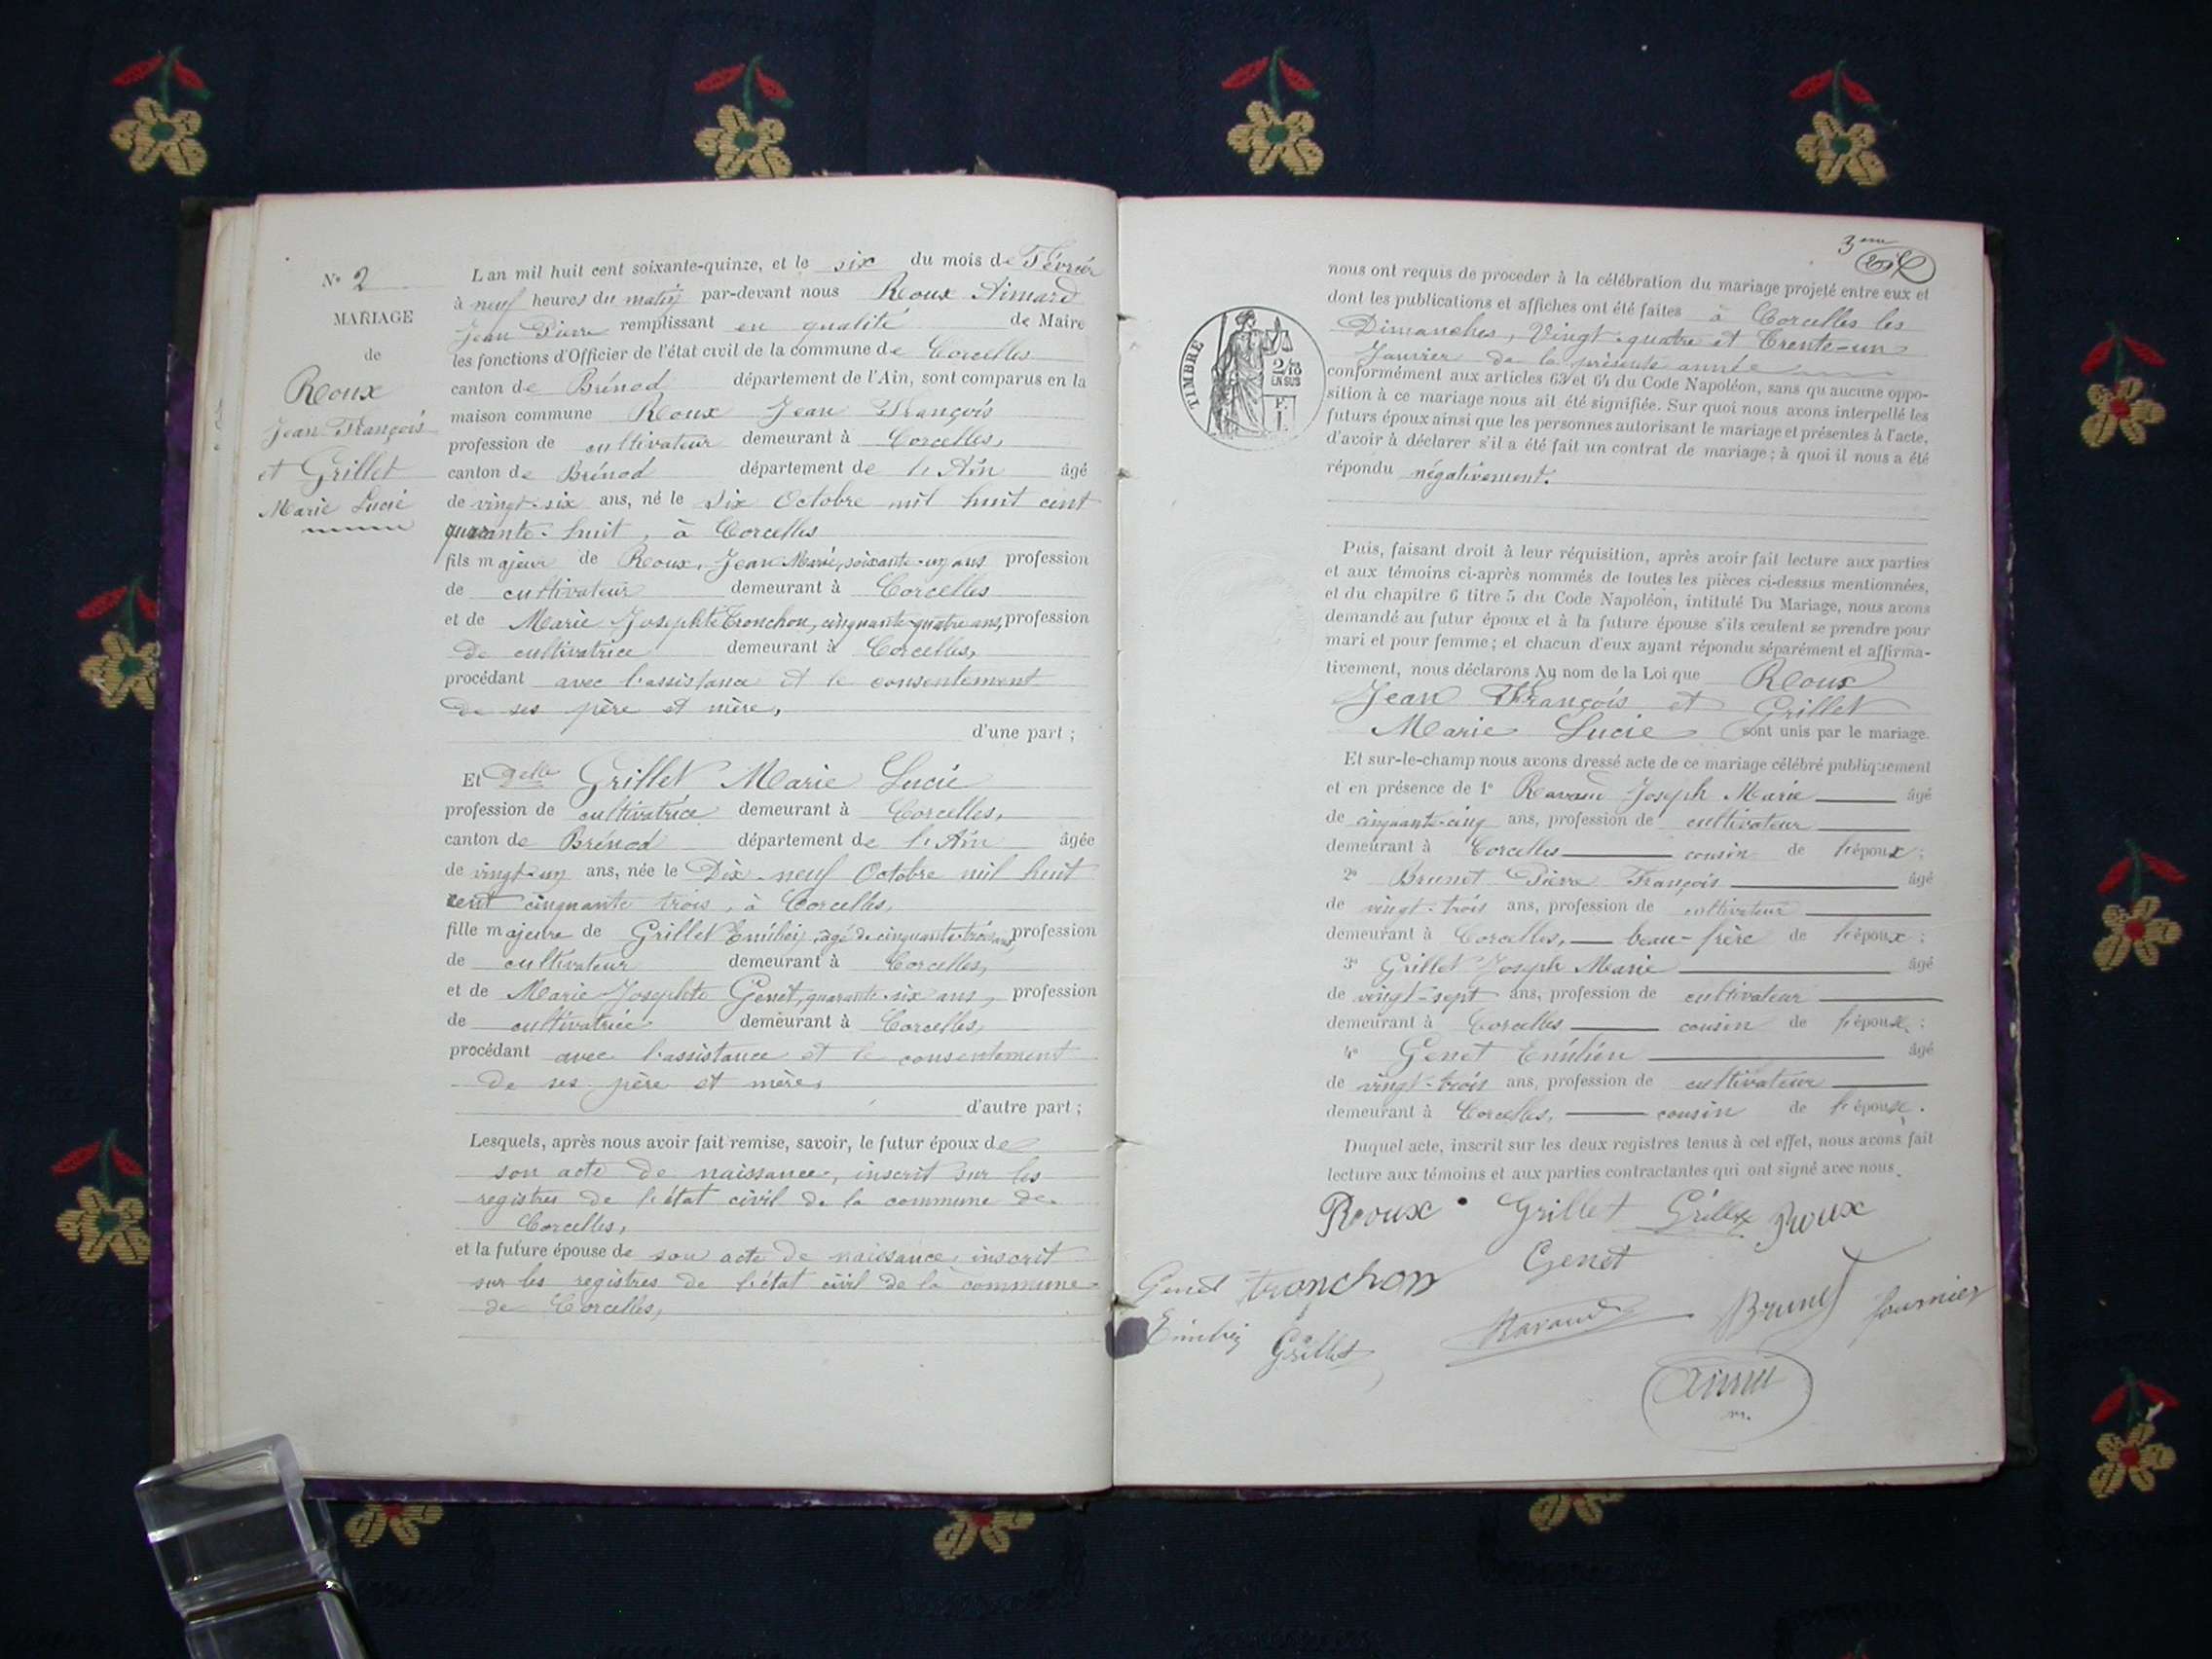 N° 2
MARIAGE
de
Roux
Jean François
et Grillet
Marie Lucie
L'an mil huit cent soixante-quinze, et le six du mois de Février
à neuf heures du matin par-devant nous Roux Aimard
Jean Pierre remplissant en qualité de Maire
les fonctions d'Officier de l'état civil de la commune de Corcelles
canton de Brénod département de l'Ain, sont comparus en la
maison commune Roux Jean François
profession de cultivateur demeurant à Corcelles,
canton de Brénod département de l'Ain âgé
de vingt-six ans, né le six Octobre mil huit cent
quarante-huit, à Corcelles
fils majeur de Roux, Jean Marie, soixante-un ans profession
de cultivateur demeurant à Corcelles
et de Marie Josephte Tronchon, cinquante-quatre ans, profession
de cultivatrice demeurant à Corcelles,
procédant avec l'assistance et le consentement
de ses père et mère,
d'une part ;
Et Delle Grillet Marie Lucie
profession de cultivatrice demeurant à Corcelles,
canton de Brénod département de l'Ain âgée
de vingt-un ans, née le Dix-neuf Octobre mil huit
cent cinquante trois, à Corcelles,
fille majeure de Grillet Emilien, âgé de cinquante-trois ans, profession
de cultivateur demeurant à Corcelles,
et de Marie Josephte Genet, quarante-six ans, profession
de cultivatrice demeurant à Corcelles,
procédant avec l'assistance et le consentement
de ses père et mère,
d'autre part ;
Lesquels, après nous avoir fait remise, savoir, le futur époux de
son acte de naissance, inscrit sur les
registres de l'état civil de la commune de
Corcelles,
et la future épouse de son acte de naissance, inscrit
sur les registres de l'état civil de la commune
de Corcelles,
3eme
TIMBRE
2/10
EN SUS
F.
1.
nous ont requis de proceder à la célébration du mariage projeté entre eux et
dont les publications et affiches ont été faites à Corcelles les
Dimanches, Vingt-quatre et Trente-un
Janvier de la présente année
conformément aux articles 63 et 64 du Code Napoléon, sans qu'aucune oppo-
sition à ce mariage nous ait été signifiée. Sur quoi nous avons interpellé les
futurs époux ainsi que les personnes autorisant le mariage et présentes à l'acte,
d'avoir à déclarer s'il a été fait un contrat de mariage ; à quoi il nous a été
répondu négativement.
Puis, faisant droit à leur réquisition, après avoir fait lecture aux parties
et aux témoins ci-après nommés de toutes les pièces ci-dessus mentionnées,
et du chapitre 6 titre 5 du Code Napoléon, intitulé Du Mariage, nous avons
demandé au futur époux et à la future épouse s'ils veulent se prendre pour
mari et pour femme ; et chacun d'eux ayant répondu séparément et affirma-
tivement, nous déclarons Au nom de la Loi que Roux
Jean François et Grillet
Marie Lucie sont unis par le mariage.
Et sur-le-champ nous avons dressé acte de ce mariage célébré publiquement
et en présence de 1° Ravaud Joseph Marie âgé
de cinquante-cinq ans, profession de cultivateur
demeurant à Corcelles cousin de l'époux ;
2° Brunet Pierre François âgé
de vingt-trois ans, profession de cultivateur
demeurant à Corcelles, beau-frère de l'époux ;
3° Grillet Joseph Marie âgé
de vingt-sept ans, profession de cultivateur
demeurant à Corcelles cousin de l'épouse ;
4° Genet Emilien âgé
de vingt-trois ans, profession de cultivateur
demeurant à Corcelles, cousin de l'épouse.
Duquel acte, inscrit sur les deux registres tenus à cet effet, nous avons fait
lecture aux témoins et aux parties contractantes qui ont signé avec nous.
Roux Grillet Grillet Roux
Genet tronchon Genet
Emilien Grillet Ravaud Brunet fournier